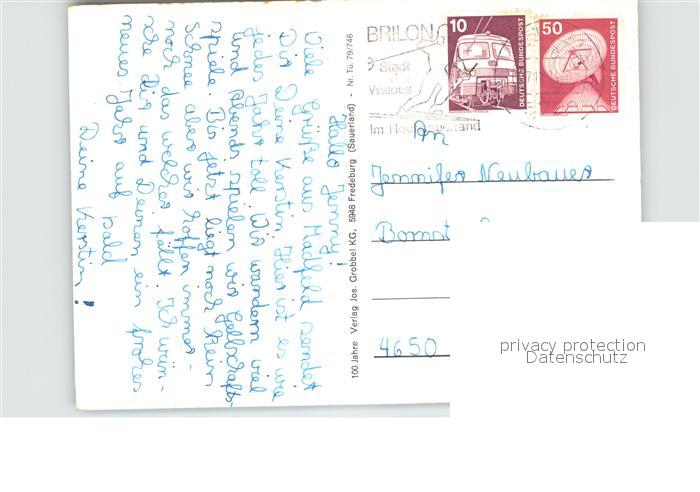 Hallo Jenny!
Viele Grüße aus Madfeld sendet
Dir Deine Kerstin. Hier ist es wie
jedes Jahr toll. Wir wandern viel
und abends spielen wir Gesellschafts-
spiele. Bis jetzt liegt noch kein
Schnee aber wir hoffen immer
noch das welcher fällt. Ich wün-
sche Dir und Deinen ein frohes
neues Jahr auf bald
Deine Kerstin!
100 Jahre Verlag Jos. Grobbel KG, 5948 Fredeburg (Sauerland) - Nr. Tü. 79/746
BRILON
Stadt
des
Waldes
Im Hochsauerland
10
DEUTSCHE BUNDESPOST
50
DEUTSCHE BUNDESPOST
An
Jennifer Neubauer
4650
privacy protection
Datenschutz